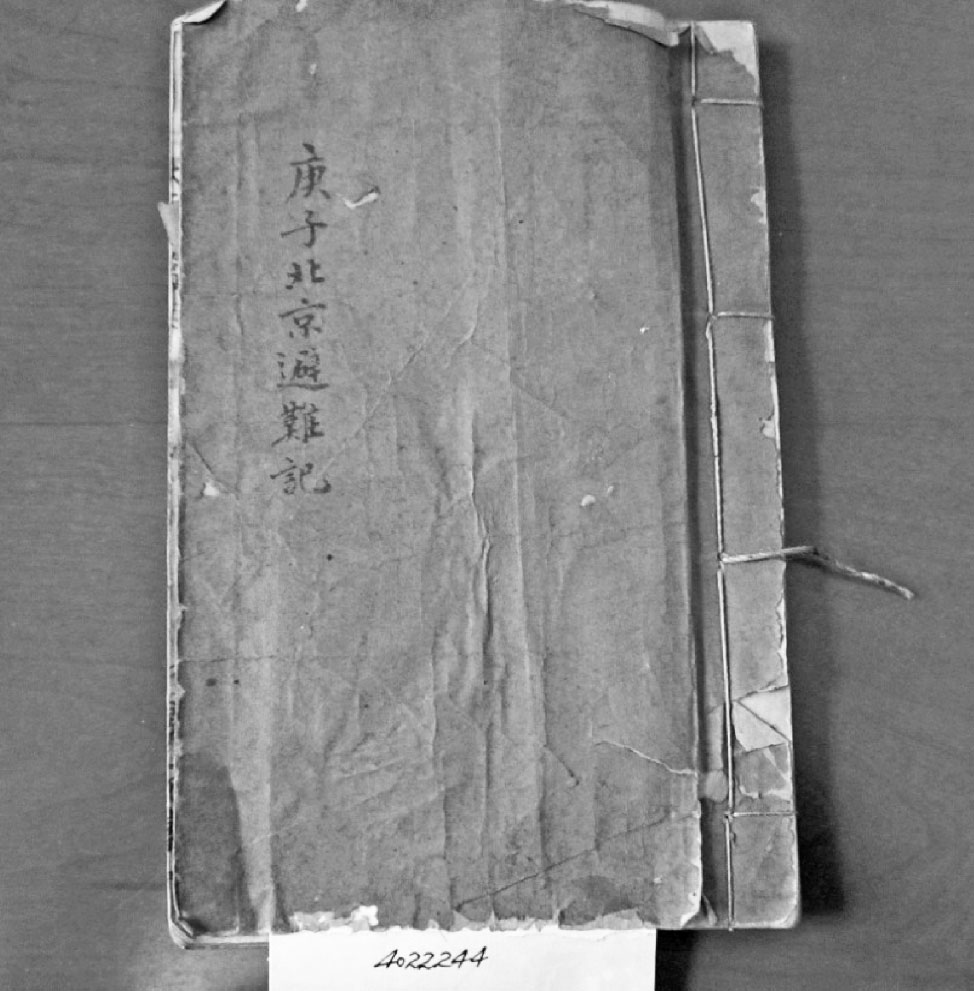 庚子北京避難記
4022244